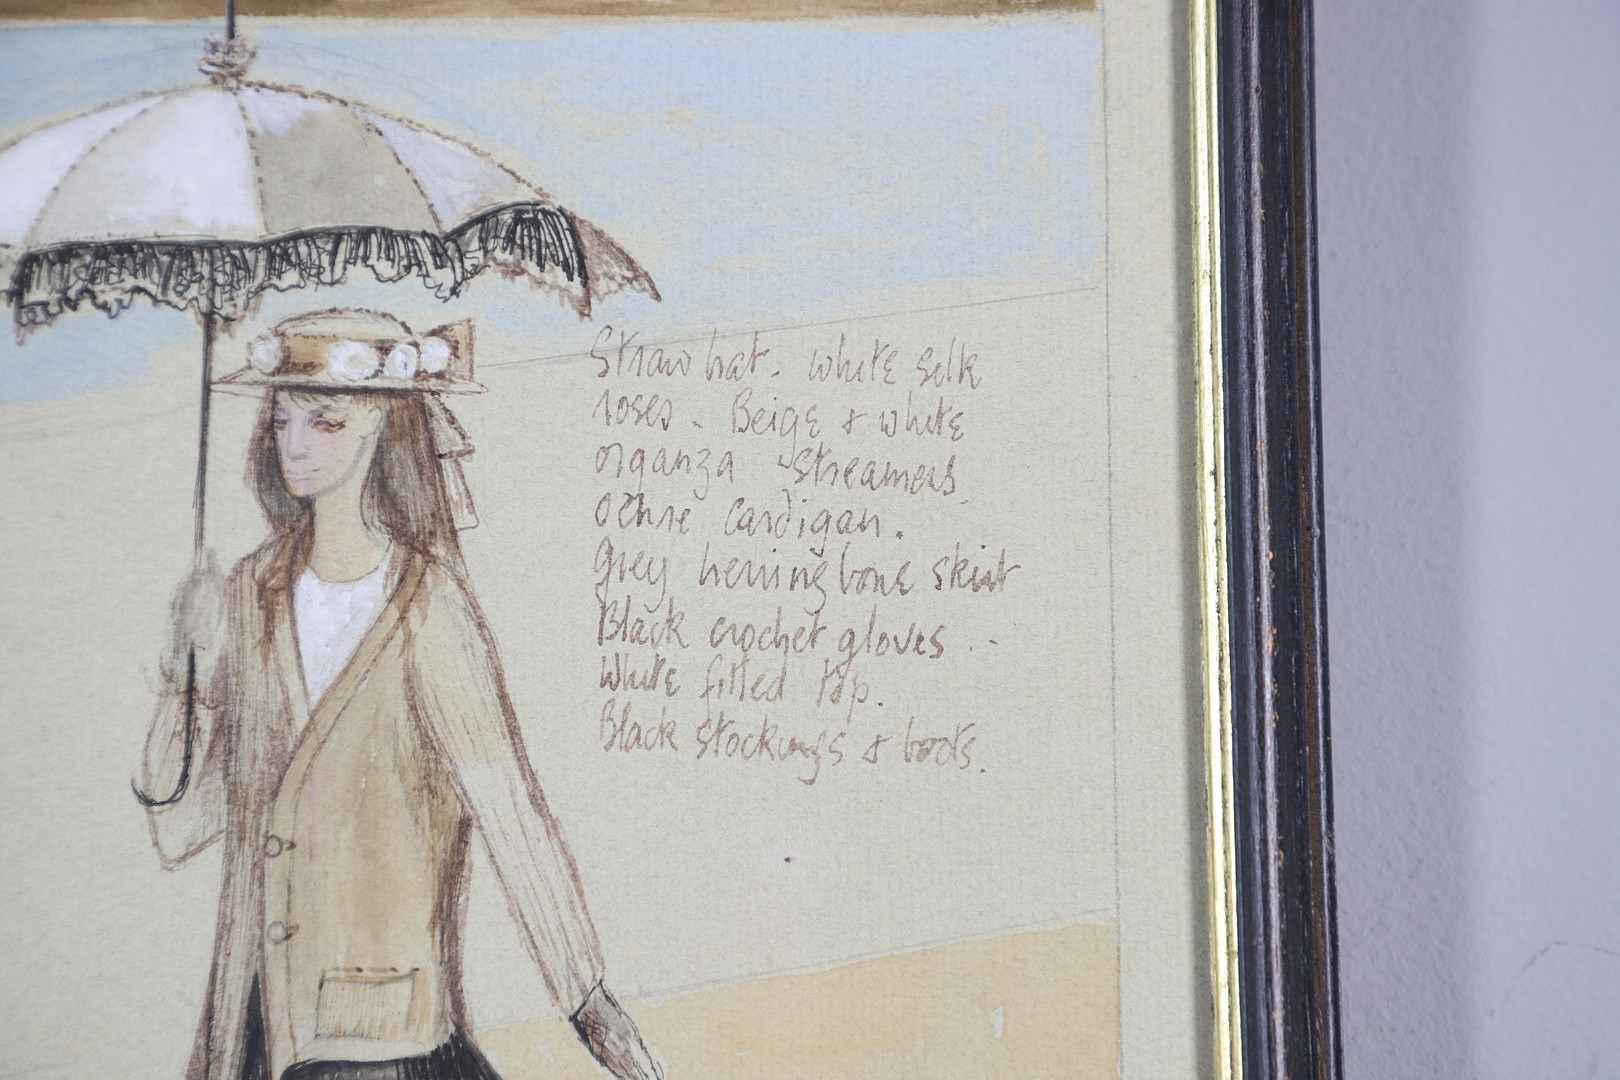 Straw hat. White silk
roses. Beige & white
organza streamers.
Ochre cardigan.
Grey herringbone skirt
Black crochet gloves.
White fitted top.
Black stockings & boots.